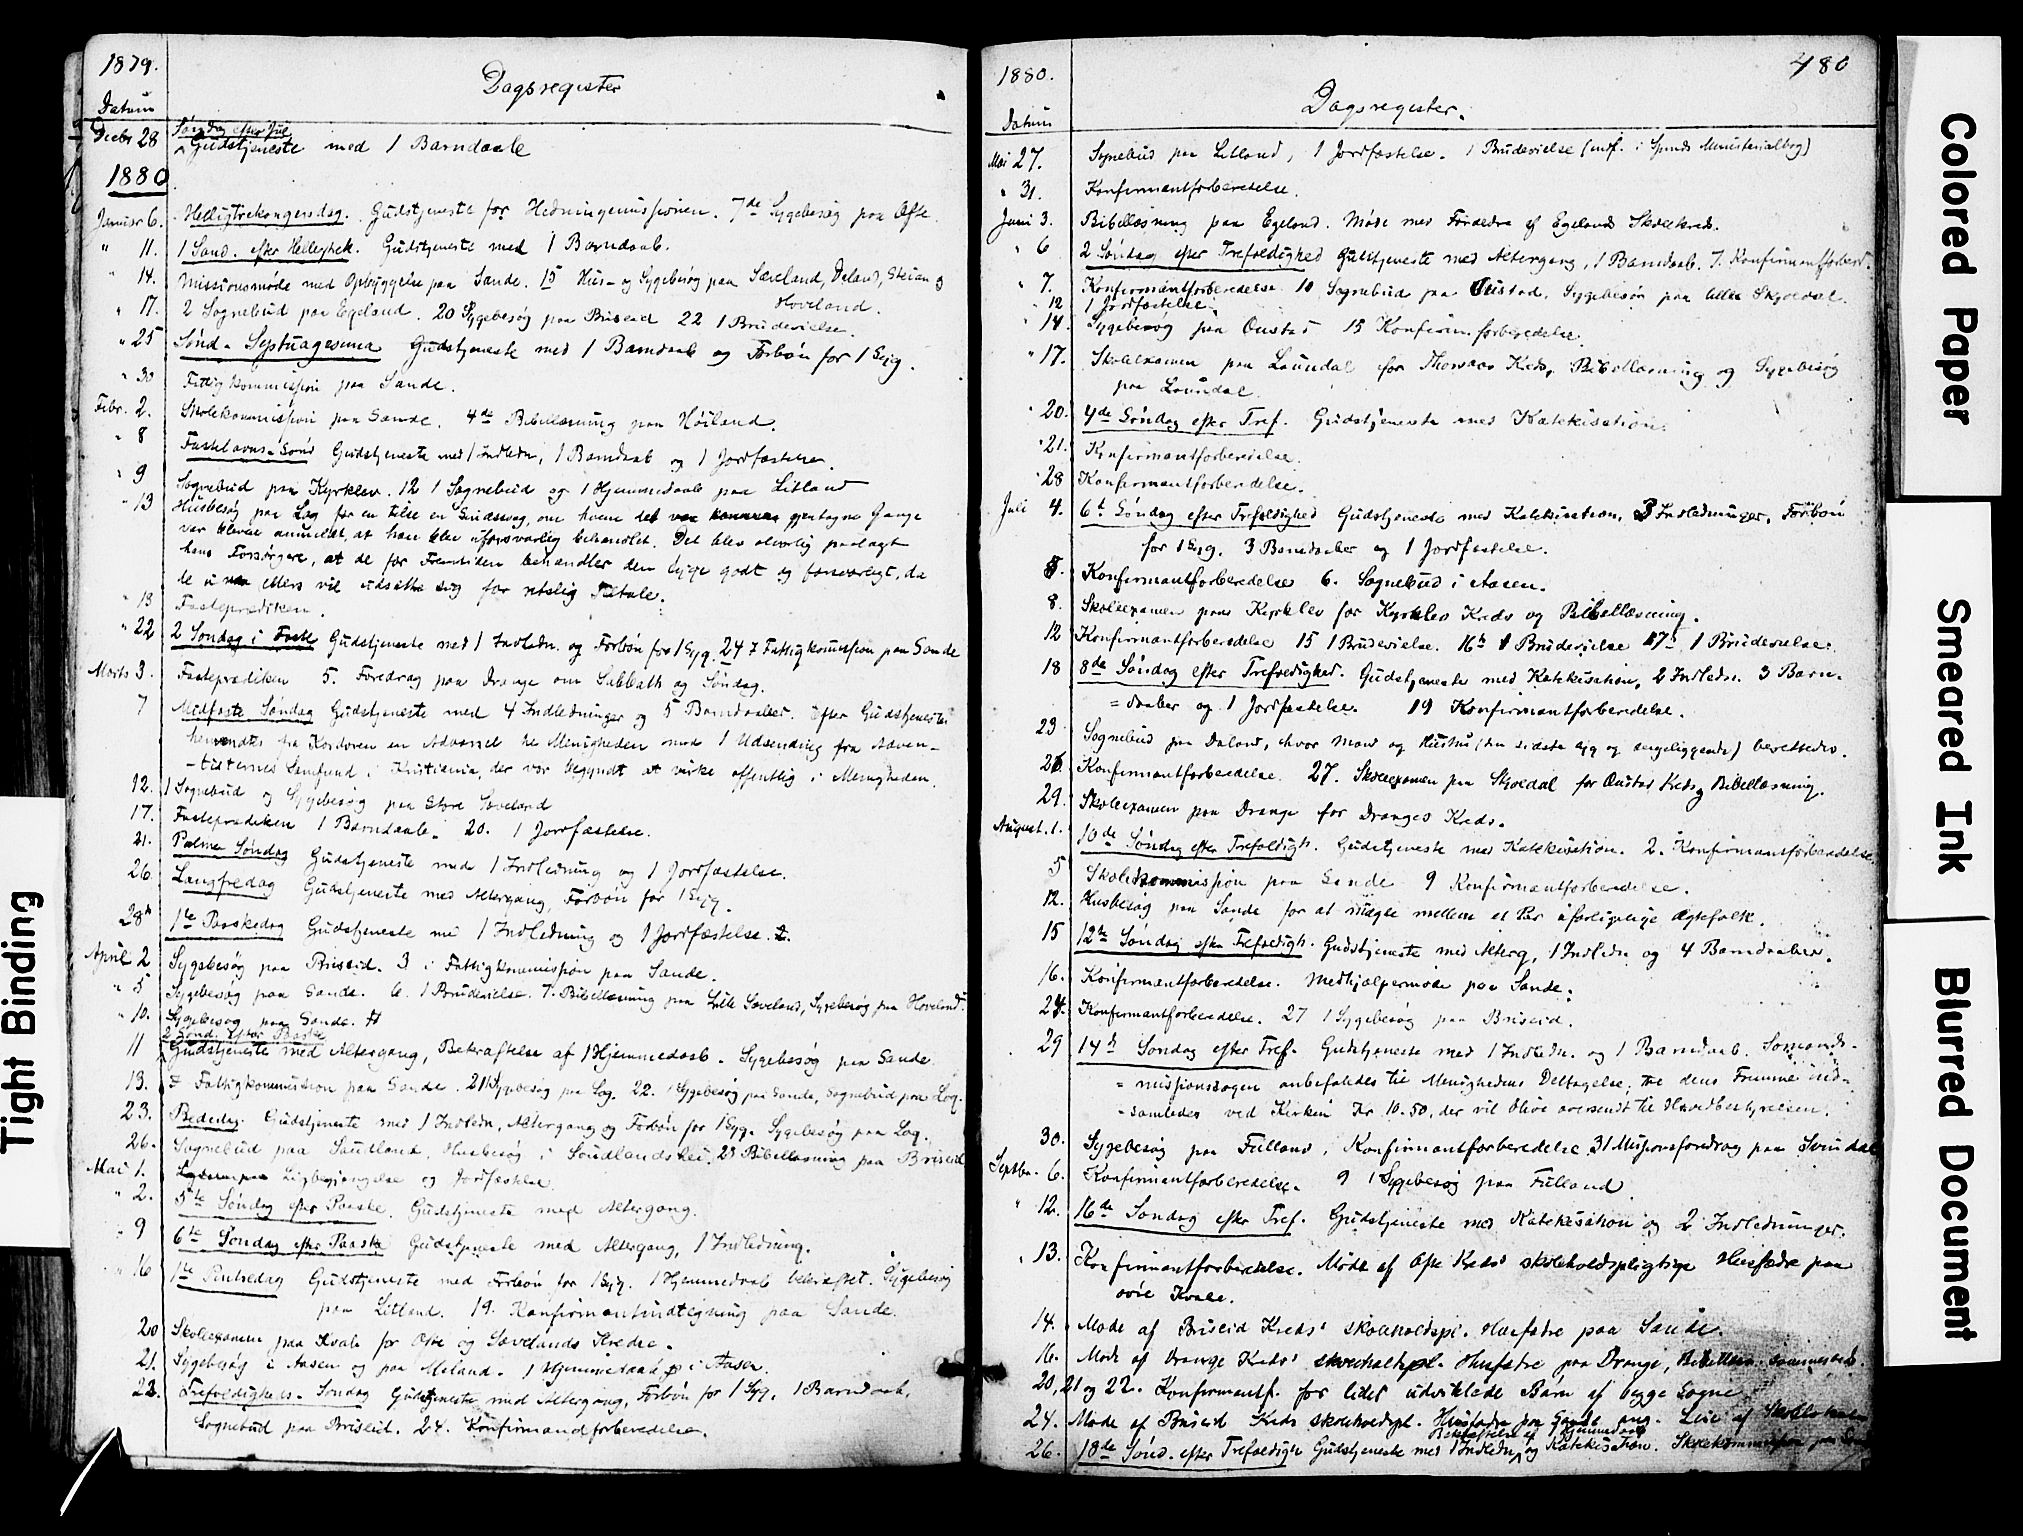 1879.
Dagsregister
Datum
Decbr 28 Søndag efter Jul
Gudstjeneste med 1 Barndaab
1880.
Januar 6. Helligtrekongersdag. Gudstjeneste for Hedningemissionen. 7de Sygebesøg paa Øfte.
" 11. 1 Sønd. efter Helligtrek. Gudstjeneste med 1 Barndaab.
" 14. Missionsmøde med Opbyggelse paa Sande. 15 Hus- og Sygebesøg paa Sæveland, Døland, og
Hoveland.
" 17. 2 Sognebud paa Egeland. 20 Sygebesøg paa Briseid 22 1 Brudevielse.
" 25 Sønd. Septuagesima Gudstjeneste med 1 Barndaab og Forbøn for 1 Syg.
" 30 Fattigkommission paa Sande.
Febr. 2. Skolekommission paa Sande. 4de Bibellæsning paa Høiland.
" 8 Fastelavns-Sønd Gudstjeneste med 1 Indledn, 1 Barndaab og 1 Jordfæstelse.
" 9 Sognebud paa Kyrklev. 12 1 Sognebud og 1 Hjemmedaab paa Litland
" 13 Husbesøg paa Log for en tilse en Sindssvag, om hvem det var kommen gjentagne Gange
var bleven anmeldt, at han blev uforsvarlig behandlet. Det blev alvorlig paalagt
hans Forsørgere, at de for Fremtiden behandler den Syge godt og forsvarligt, da
de ellers vil udsætte sig for retslig Tiltale.
" 13 Fasteprædiken.
" 22 2 Søndag i Faste Gudstjeneste med 1 Indledn. og Forbøn for 1 Syg. 24 Fattigkommission paa Sande
Marts 3. Fasteprædiken 5. Foredrag paa Drange om Sabbath og Søndag.
7 Midfaste Søndag Gudstjeneste med 4 Indledninger og 5 Barndaaber. Efter Gudstjenesten
henvendtes fra Kordøren en Advarsel til Menigheden mod 1 Udsending fra Adven-
-tisternes Samfund i Kristiania, der var begyndt at virke offentlig i Menigheden.
12. 1 Sognebud og Sygebesøg paa Store Sæveland
17. Fasteprædiken 1 Barndaab. 20. 1 Jordfæstelse.
21. Palme Søndag Gudstjeneste med 1 Indledning og 1 Jordfæstelse.
26. Langfredag Gudstjeneste med Altergang, Forbøn for 1 Syg.
28de 1te Paaskedag Gudstjeneste med 1 Indledning og 1 Jordfæstelse.
April 2 Sygebesøg paa Briseid. 3 i Fattigkommission paa Sande.
" 5 Sygebesøg paa Sande. 6. 1 Brudevielse. 7. Bibellæsning paa Lille Sæveland, Sygebesøg paa Hoveland.
" 10. Sygebesøg paa Sande.
11 2 Sønd. efter Paaske
Gudstjeneste med Altergang, Bekræftelse af 1 Hjemmedaab. Sygebesøg paa Sande.
13. Fattigkommission paa Sande. 21 Sygebesøg paa Log. 22. 1 Sygebesøg paa Sande, Sognebud paa Log.
23. Bededag. Gudstjeneste med 1 Indledn, Altergang og Forbøn for 1 Syg. Sygebesøg paa Log.
26. Sognebud paa Saudland, Husbesøg i Saudlandshei. 29 Bibellæsning paa Briseid
Mai 1. Ligbegjængelse og Jordfæstelse
" 2. 5te Søndag efter Paaske. Gudstjeneste med Altergang.
" 9 6te Søndag efter Paaske Gudstjeneste med Altergang, 1 Indledning.
" 16 1te Pintsedag Gudstjeneste med Forbøn for 1 Syg. 1 Hjemmedaab bekræftet. Sygebesøg
paa Litland. 19. Konfirmantudtegning paa Sande.
20 Skoleexamen paa Kvale for Øfte og Sævelands Kredse.
21. Sygebesøg i Aasen og paa Meland. 1 Hjemmedaab i Aasen.
22. Trefoldigheds-Søndag Gudstjeneste med Altergang, Forbøn for 1 Syg. 1 Barndaab,
Sognebud paa Briseid. 24. Konfirmandforberedelse.
1880.
480
Dagsregister.
Datum
Mai 27. Sognebud paa Litland, 1 Jordfæstelse. 1 Brudevielse (indf. i Spinds Ministerialbog)
" 31. Konfirmantforberedelse.
Juni 3. Bibellæsning paa Egeland. Møde med Forældre af Egelands Skolekreds.
" 6 2 Søndag efter Trefoldighed Gudstjeneste med Altergang, 1 Barndaab. 7. Konfirmantforbered.
" 7. Konfirmantforberedelse. 10 Sognebud paa Øustad. Sygebesøg paa Lille Skjoldal.
" 12 1 Jordfæstelse.
" 14. Sygebesøg paa Øustad 15 Konfirm. forberedelse.
" 17. Skoleexamen paa Laundal for Kreds, Bibellæsning og Sygebesøg
paa Laundal.
" 20. 4de Søndag efter Tref. Gudstjeneste med Katekisation.
" 21. Konfirmantforberedelse.
" 28 Konfirmantforberedelse.
Juli 4. 6te Søndag efter Trefoldighed Gudstjeneste med Katekisation, 3 Indledninger, Forbøn
for 1 Syg. 3 Barndaaber og 1 Jordfæstelse.
5. Konfirmantforberedelse 6. Sognebud i Aasen.
8. Skoleexamen paa Kyrklev for Kyrklev Kreds og Bibellæsning.
12 Konfirmantforberedelse 15 1 Brudevielse. 16de 1 Brudevielse 17de 1 Brudevielse.
18 8de Søndag efter Trefoldighed. Gudstjeneste med Katekisation, 2 Indledn. 3 Barn-
=daaber og 1 Jordfæstelse. 19 Konfirmantforberedelse.
23. Sognebud paa Døland, hvor Mand og Hustru (den sidste syg og sengeliggende) berettedes.
26. Konfirmantforberedelse. 27. Skoleexamen paa Skjoldal for Øustad Kreds, Bibellæsning.
29. Skoleexamen paa Drange for Dranges Kreds.
August. 1. 10de Søndag efter Trefoldigh. Gudstjeneste med Katekisation. 2. Konfirmantforberedelse
5 Skolekommission paa Sande 9 Konfirmantforberedelse.
12. Husbesøg paa Sande for at mægle mellem et Par uforligelige Ægtefolk.
15 12te Søndag efter Trefoldigh. Gudstjeneste med Alterg, 1 Indledn og 4 Barndaaber.
16. Konfirmantforberedelse. Medhjælpermøde paa Sande.
24. Konfirmantforberedelse. 27 1 Sygebesøg paa Briseid.
29 14de Søndag efter Tref. Gudstjeneste med 1 Indledn. og 1 Barndaab. Sømands-
=missionssagen anbefaledes til Menighedens Deltagelse; til dens Fremme ind-
=samledes ved Kirken Kr. 10.50, der vil blive oversendt til Hovedbestyrelsen.
30. Sygebesøg paa Fuland, Konfirmantforberedelse. 31 Missionsforedrag paa Svindal
Septbr. 6. Konfirmantforberedelse. 9 1 Sygebesøg paa Fuland.
" 12. 16de Søndag efter Tref. Gudstjeneste med Katekisation og 2 Indledninger.
" 13. Konfirmantforberedelse. Møde af Øfte Kreds' skoleholdspligtige Husfædre paa
øvre Kvale.
14. Møde af Briseid Kreds' skoleholdspl. Husfædre paa Sande.
16. Møde af Drange Kreds' skoleholdspl. Husfædre paa Drange, Bibellæsn. sammesteds.
20, 21 og 22. Konfirmantf. for lidet udviklede Børn af begge Sogne
24. Møde af Briseid Kreds skoleholdspl. Husfædre paa Sande ang. Leie af
Bekræftelse af 1 Hjemmedaab
26. 18de Sønd. efter Trefoldigh Gudstjeneste med 1 Indledn, og Katekisation. Skolekommission paa
Tight Binding
Colored Paper
Smeared Ink
Blurred Document